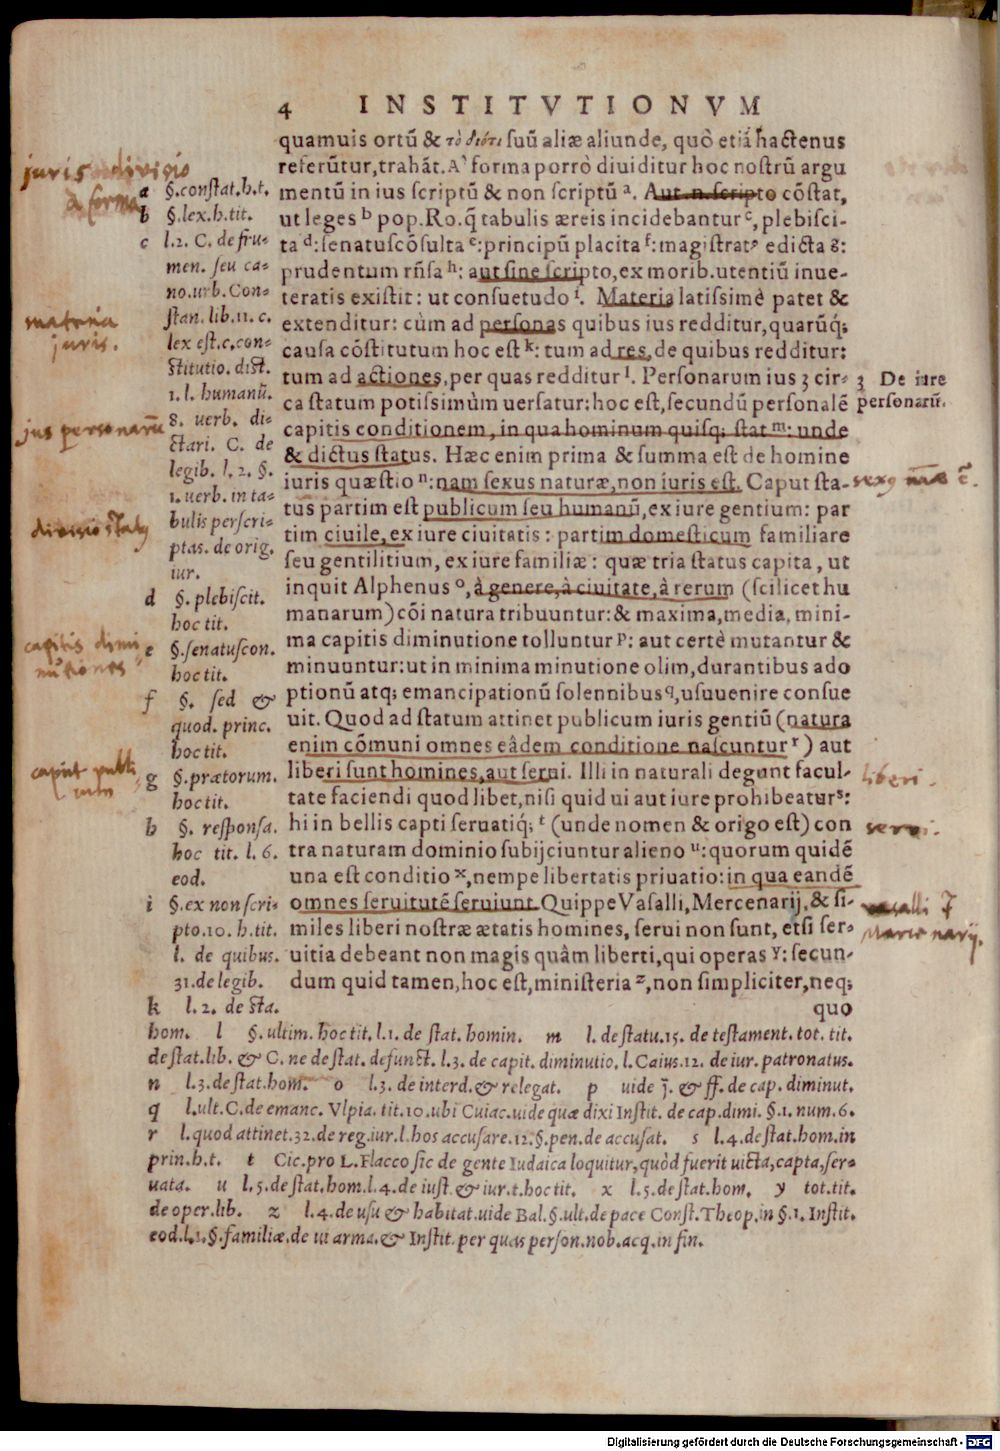 4 INSTITVTIONVM
quamuis ortũ & τὸ διότι suũ aliæ aliunde, quò etiã hactenus
referũtur, trahãt. A forma porrò diuiditur hoc nostrũ argu
mentũ in ius scriptũ & non scriptũ ᵃ. Aut.n.scripto cõstat,
ut leges ᵇ pop.Ro.q̃ tabulis æreis incidebantur ᶜ, plebisci-
ta ᵈ: senatuscõsulta ᵉ: principũ placita ᶠ: magistratꝰ edicta ᵍ:
prudentum rñsa ʰ: aut sine scripto, ex morib.utentiũ inue-
teratis existit: ut consuetudo ⁱ. Materia latissimè patet &
extenditur: cùm ad personas quibus ius redditur, quarũq;
causa cõstitutum hoc est ᵏ: tum ad res, de quibus redditur:
tum ad actiones, per quas redditur ˡ. Personarum ius 3 cir-
ca statum potissimùm uersatur: hoc est, secundũ personalẽ
capitis conditionem, in qua hominum quisq; stat ᵐ: unde
& dictus status. Hæc enim prima & summa est de homine
iuris quæstio ⁿ: nam sexus naturæ, non iuris est. Caput sta-
tus partim est publicum seu humanũ, ex iure gentium: par
tim ciuile, ex iure ciuitatis: partim domesticum familiare
seu gentilitium, ex iure familiæ: quæ tria status capita, ut
inquit Alphenus ᵒ, à genere, à ciuitate, à rerum (scilicet hu
manarum) cõi natura tribuuntur: & maxima, media, mini-
ma capitis diminutione tolluntur ᵖ: aut certè mutantur &
minuuntur: ut in minima minutione olim, durantibus ado
ptionũ atq; emancipationũ solennibus ᑫ, usuuenire consue
uit. Quod ad statum attinet publicum iuris gentiũ (natura
enim cõmuni omnes eâdem conditione nascuntur ʳ) aut
liberi sunt homines, aut serui. Illi in naturali degunt facul-
tate faciendi quod libet, nisi quid ui aut iure prohibeatur ˢ:
hi in bellis capti seruatiq; ᵗ (unde nomen & origo est) con
tra naturam dominio subijciuntur alieno ᵘ: quorum quidẽ
una est conditio ˣ, nempe libertatis priuatio: in qua eandẽ
omnes seruitutẽ seruiunt. Quippe Vasalli, Mercenarij, & si-
miles liberi nostræ ætatis homines, serui non sunt, etsi ser-
uitia debeant non magis quàm liberti, qui operas ʸ: secun-
dum quid tamen, hoc est, ministeria ᶻ, non simpliciter, neq;
quo
juris divisio
à forma
materia
juris.
jus personarũ
divisio statꝰ
capitis dimi
nutiones
caput publi
cum
a §.constat.h.t.
b §.lex.h.tit.
c l.2. C. de fru-
men. seu ca-
no.urb.Con-
stan.lib.11.c.
lex est.c.con-
stitutio. dist.
1.l. humanũ.
8. uerb. di-
ctari. C. de
legib. l. 2. §.
1. uerb. in ta-
bulis perscri-
ptas. de orig.
iur.
d §.plebiscit.
hoc tit.
e §.senatuscon.
hoc tit.
f §. sed &
quod. princ.
hoc tit.
g §.prætorum.
hoc tit.
h §. responsa.
hoc tit. l. 6.
eod.
i §.ex non scri-
pto.10.h.tit.
l. de quibus.
31.de legib.
3 De iure
personarũ.
liberi.
servi.
vasalli
Mercenarij.
k l.2. de sta.
hom. l §.ultim.hoc tit.l.1.de stat.homin. m l.de statu.15.de testament.tot.tit.
de stat.lib. & C. ne de stat.defunct.l.3.de capit.diminutio.l.Caius.12.de iur.patronatus.
n l.3.de stat.hom. o l.3.de interd.& relegat. p uide j. & ff.de cap.diminut.
q l.ult.C.de emanc.Vlpia.tit.10.ubi Cuiac.uide quæ dixi Instit.de cap.dimi.§.1.num.6.
r l.quod attinet.32.de reg.iur.l.hos accusare.12.§.pen.de accusat. s l.4.de stat.hom.in
prin.h.t. t Cic.pro L.Flacco sic de gente Iudaica loquitur, quòd fuerit uicta, capta, ser-
uata. u l.5.de stat.hom.l.4.de iust.& iur.t.hoc tit. x l.5.de stat.hom. y tot.tit.
de oper.lib. z l.4.de usu & habitat.uide Bal.§.ult.de pace Const.Theop.in §.1.Instit.
eod.l.1.§.familiæ.de ui arma.& Instit.per quas person.nob.acq.in fin.
Digitalisierung gefördert durch die Deutsche Forschungsgemeinschaft - DFG